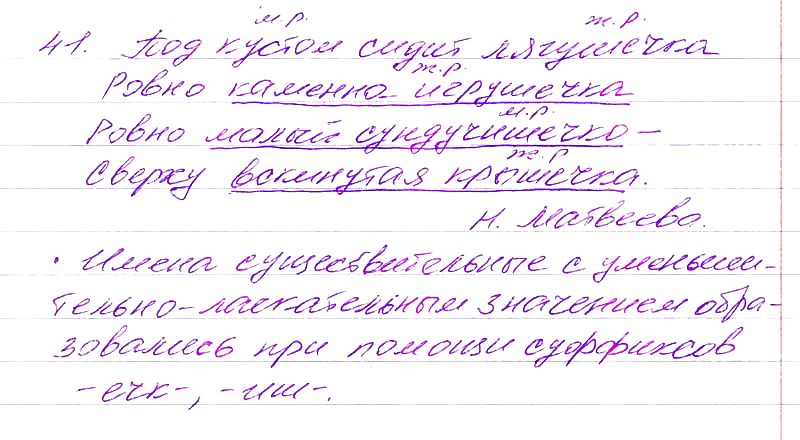 м.р. ж.р.
41. Под кустом сидит лягушечка
ж.р.
Ровно каменна игрушечка
м.р.
Ровно малый сундучишечко –
ж.р
Сверху вскинутая крышечка.
Н. Матвеева.
• Имена существительные с уменьши-
тельно-ласкательным значением обра-
зовались при помощи суффиксов
-ечк-, -иш-.